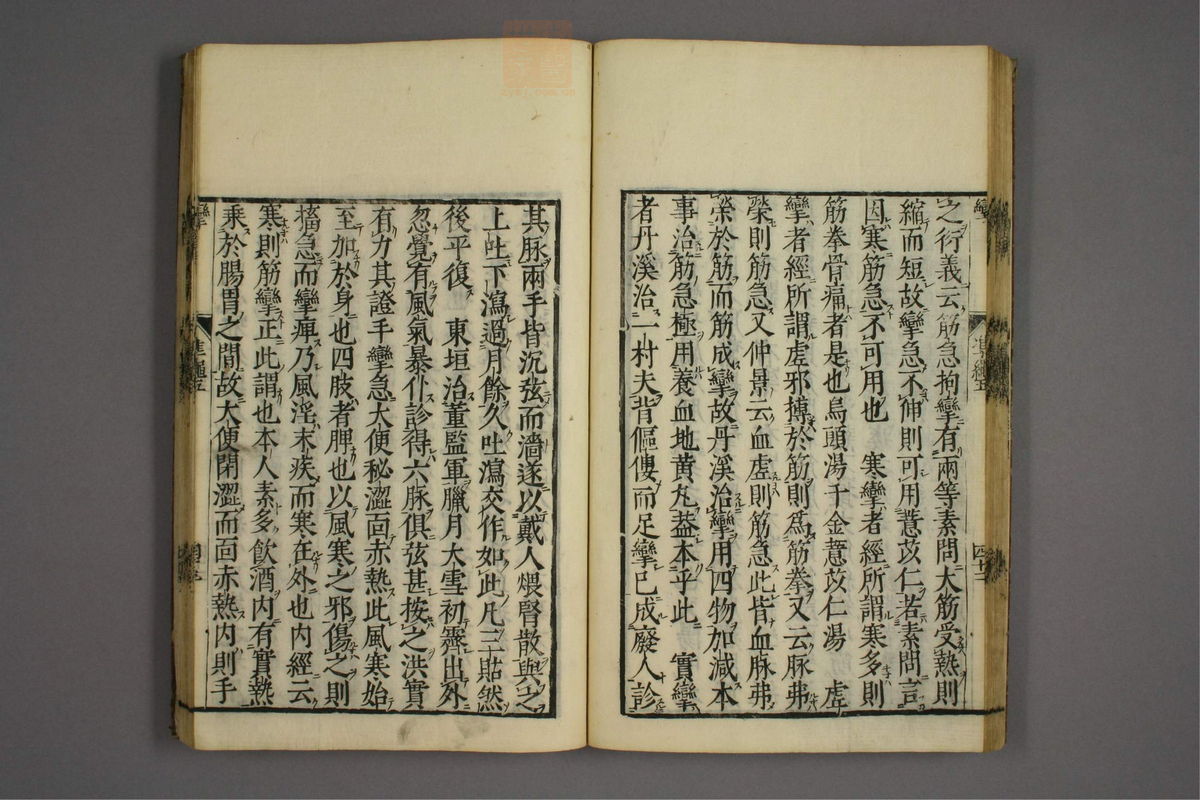 之衍義云筋急拘攣有兩等素問大筋受熱則
縮而短故攣急不伸則可用薏苡仁若素問言
因寒筋急不可用也　寒攣者經所謂寒多則
筋拳骨痛者是也烏頭湯千金薏苡仁湯　虛
攣者經所謂虛邪搏於筋則爲筋拳又云脉弗
榮則筋急又仲景云血虛則筋急此皆血脉弗
榮於筋而筋成攣故丹溪治攣用四物加減本
事治筋急極用養血地黄丸葢本乎此　實攣
者丹溪治一村夫背傴僂而足攣已成廢人診
其脉兩手皆沉弦而濇遂以戴人煨腎散與之
上吐下瀉過月餘久吐瀉交作如此凡三貼然
後平復　東垣治董監軍臘月大雪初霽出外
忽覺有風氣暴仆診得六脉俱弦甚按之洪實
有力其證手攣急大便秘澀面赤熱此風寒始
至加於身也四肢者脾也以風寒之邪傷之則
搐急而攣痺乃風淫末疾而寒在外也内經云
寒則筋攣正此謂也本人素多飲酒内有實熱
乘於腸胃之間故大便閉澀而面赤熱内則手
攣
準繩五